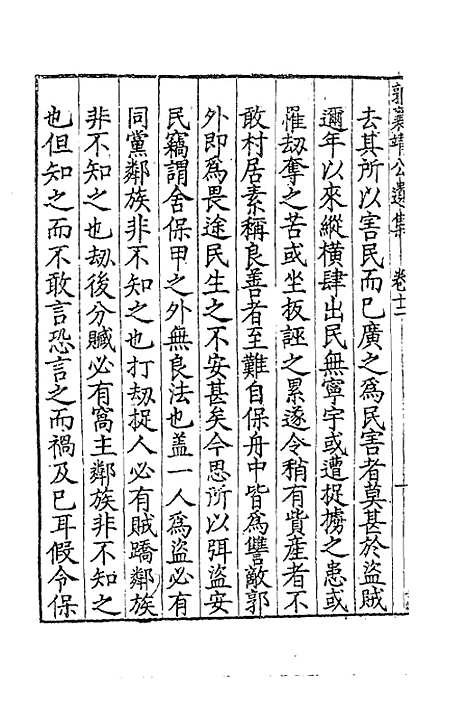 郭襄靖公遺集 卷十二
去其所以害民而已廣之為民害者莫甚於盜賊
邇年以來縱橫肆出民無寧宇或遭捉擄之患或
罹刼奪之苦或坐扳誣之累遂令稍有貲産者不
敢村居素稱良善者至難自保舟中皆為讐敵郭
外即為畏途民生之不安甚矣今思所以弭盜安
民竊謂舍保甲之外無良法也盖一人為盜必有
同黨鄰族非不知之也打刼捉人必有賊蹻鄰族
非不知之也刼後分贓必有窩主鄰族非不知之
也但知之而不敢言恐言之而禍及已耳假令保